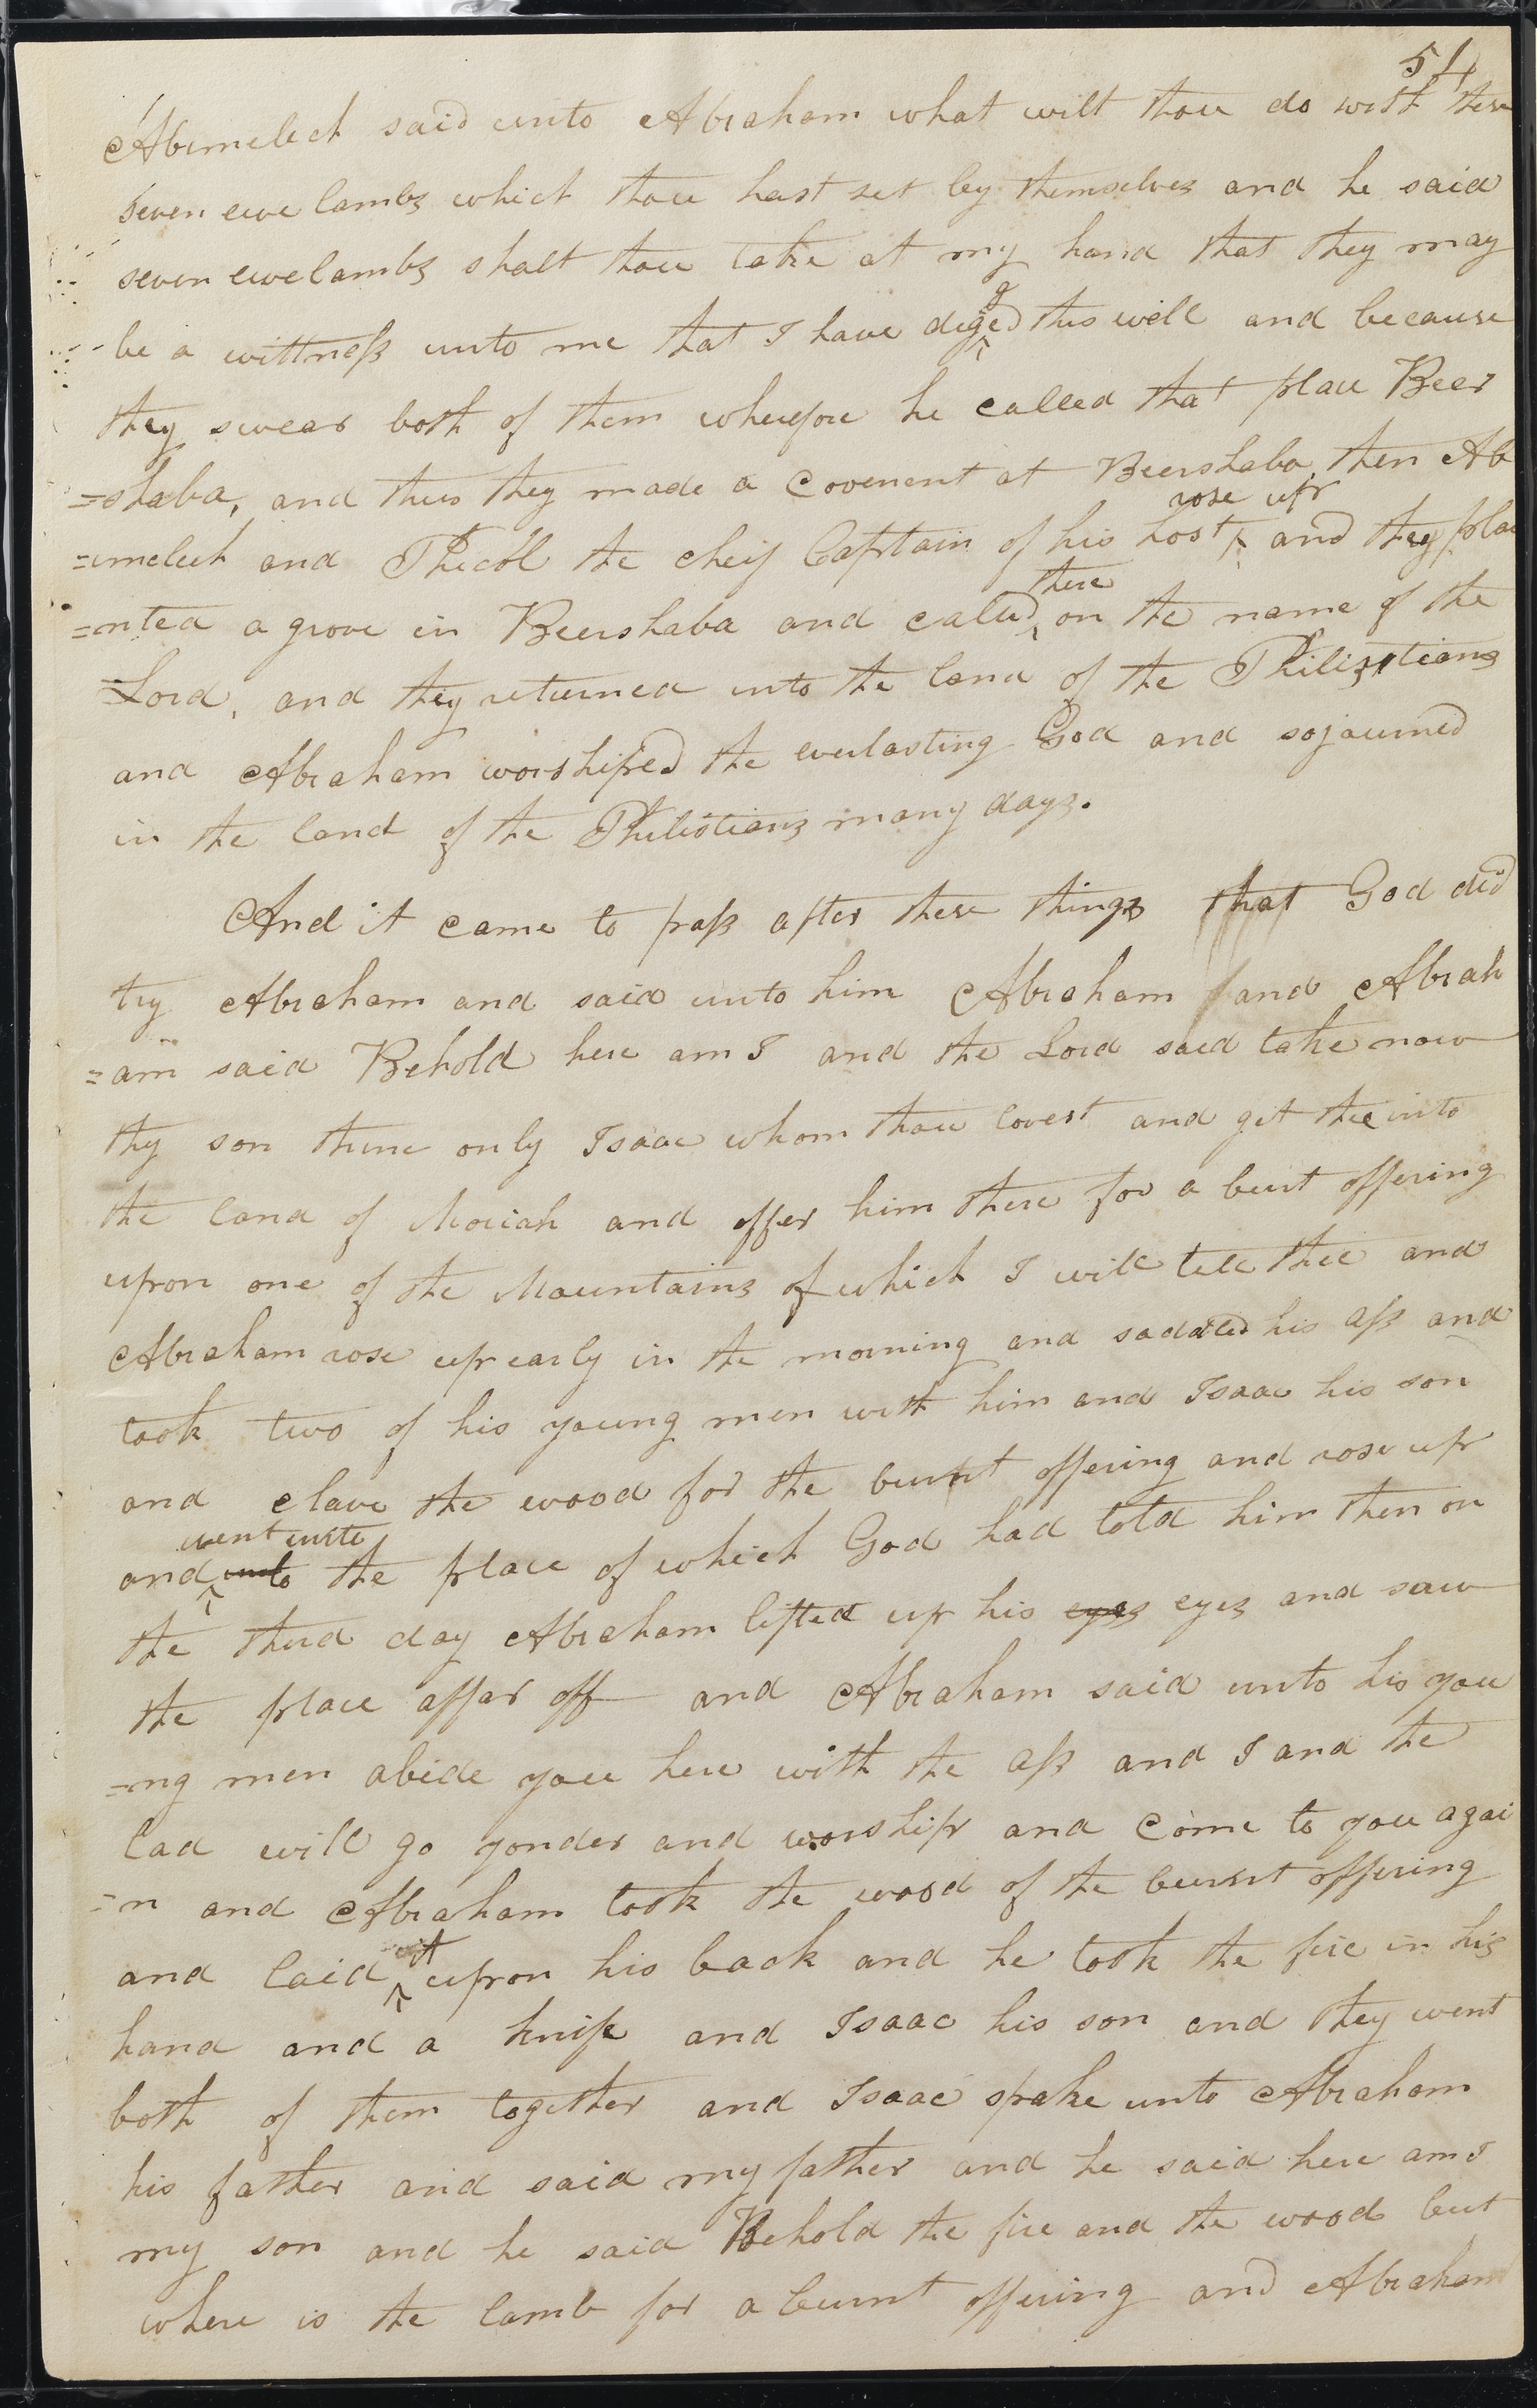 54
Abimelech said unto Abraham what wilt thou do with these
seven ewe lambs which thou hast set by themselves and he said
seven ewe lambs shalt thou take at my hand that they may
g
be a wittness unto me that I have diged this well and because
they swear both of them wherefore he called that place Beer
=shaba, and thus they made a covenent at Beershaba then Ab
rose up
=imelech and Phicol the cheif Captain of his host and they pla
there
=nted a grove in Beershaba and called on the name of the
Lord, and they returned into the land of the Philistians
and Abraham worshiped the everlasting God and sojourned
in the land of the Philistians many days.
And it came to pass after these things that God did
try Abraham and said unto him Abraham and Abrah
=am said Behold here am I and the Lord said take now
thy son thine only Isaac whom thou lovest and get thee into
the land of Moriah and offer him there for a burt offering
upon one of the Mountains of which I will tell thee and
Abraham rose up early in the morning and saddled his ass and
took two of his young men with him and Isaac his son
and clave the wood for the burnt offering and rose up
went unto
and unto the place of which God had told him then on
the third day Abraham lifted up his eyes eyes and saw
the place affar off and Abraham said unto his you
=ng men abide you here with the ass and I and the
lad will go yonder and worship and come to you agai
=n and Abraham took the wood of the burnt offering
it
and laid upon his back and he took the fire in his
hand and a knife and Isaac his son and they went
both of them together and Isaac spake unto Abraham
his father and said my father and he said here am I
my son and he said Behold the fire and the wood but
where is the lamb for a burnt offering and Abraham